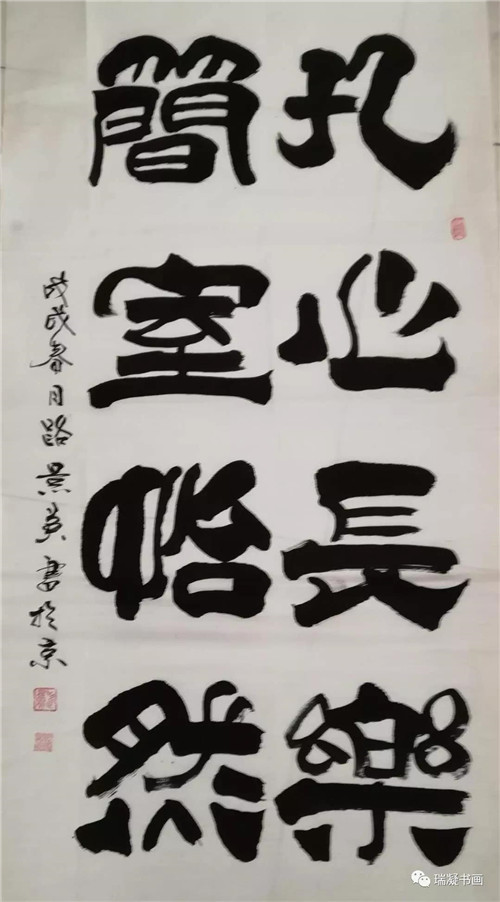 孔心長樂
簡室怡然
戊戌春月路景英書於京
瑞凝书画